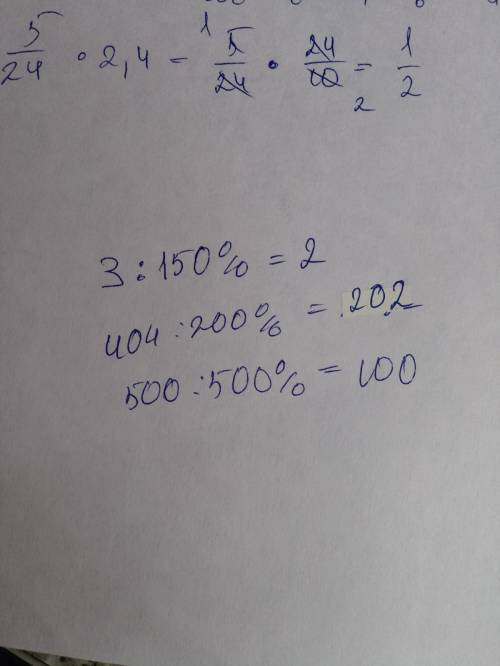 5/24 · 2,4 = 1 5/24 · 24/10 2 = 1/2
3 : 150% = 2
404 : 200% = 202
500 : 500% = 100